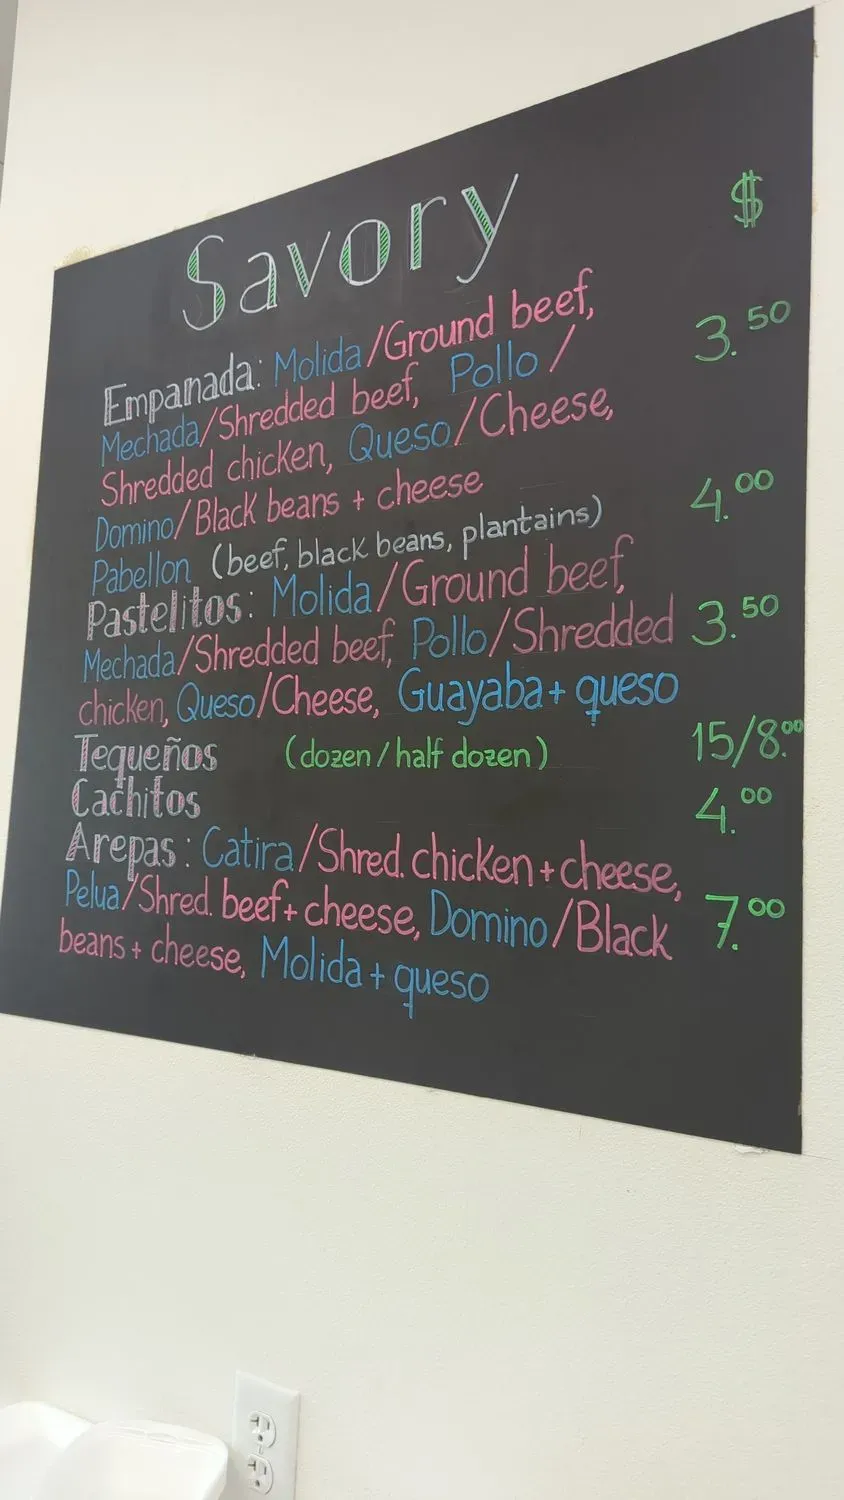 Savory $
Empanada: Molida/Ground beef, 3.50
Mechada/Shredded beef, Pollo/
Shredded chicken, Queso/Cheese,
Domino/Black beans + cheese
Pabellon (beef, black beans, plantains) 4.00
Pastelitos: Molida/Ground beef,
Mechada/Shredded beef, Pollo/Shredded 3.50
chicken, Queso/Cheese, Guayaba + queso
Tequeños (dozen/half dozen) 15/8.00
Cachitos 4.00
Arepas: Catira/Shred. chicken + cheese,
Pelua/Shred. beef + cheese, Domino/Black 7.00
beans + cheese, Molida + queso